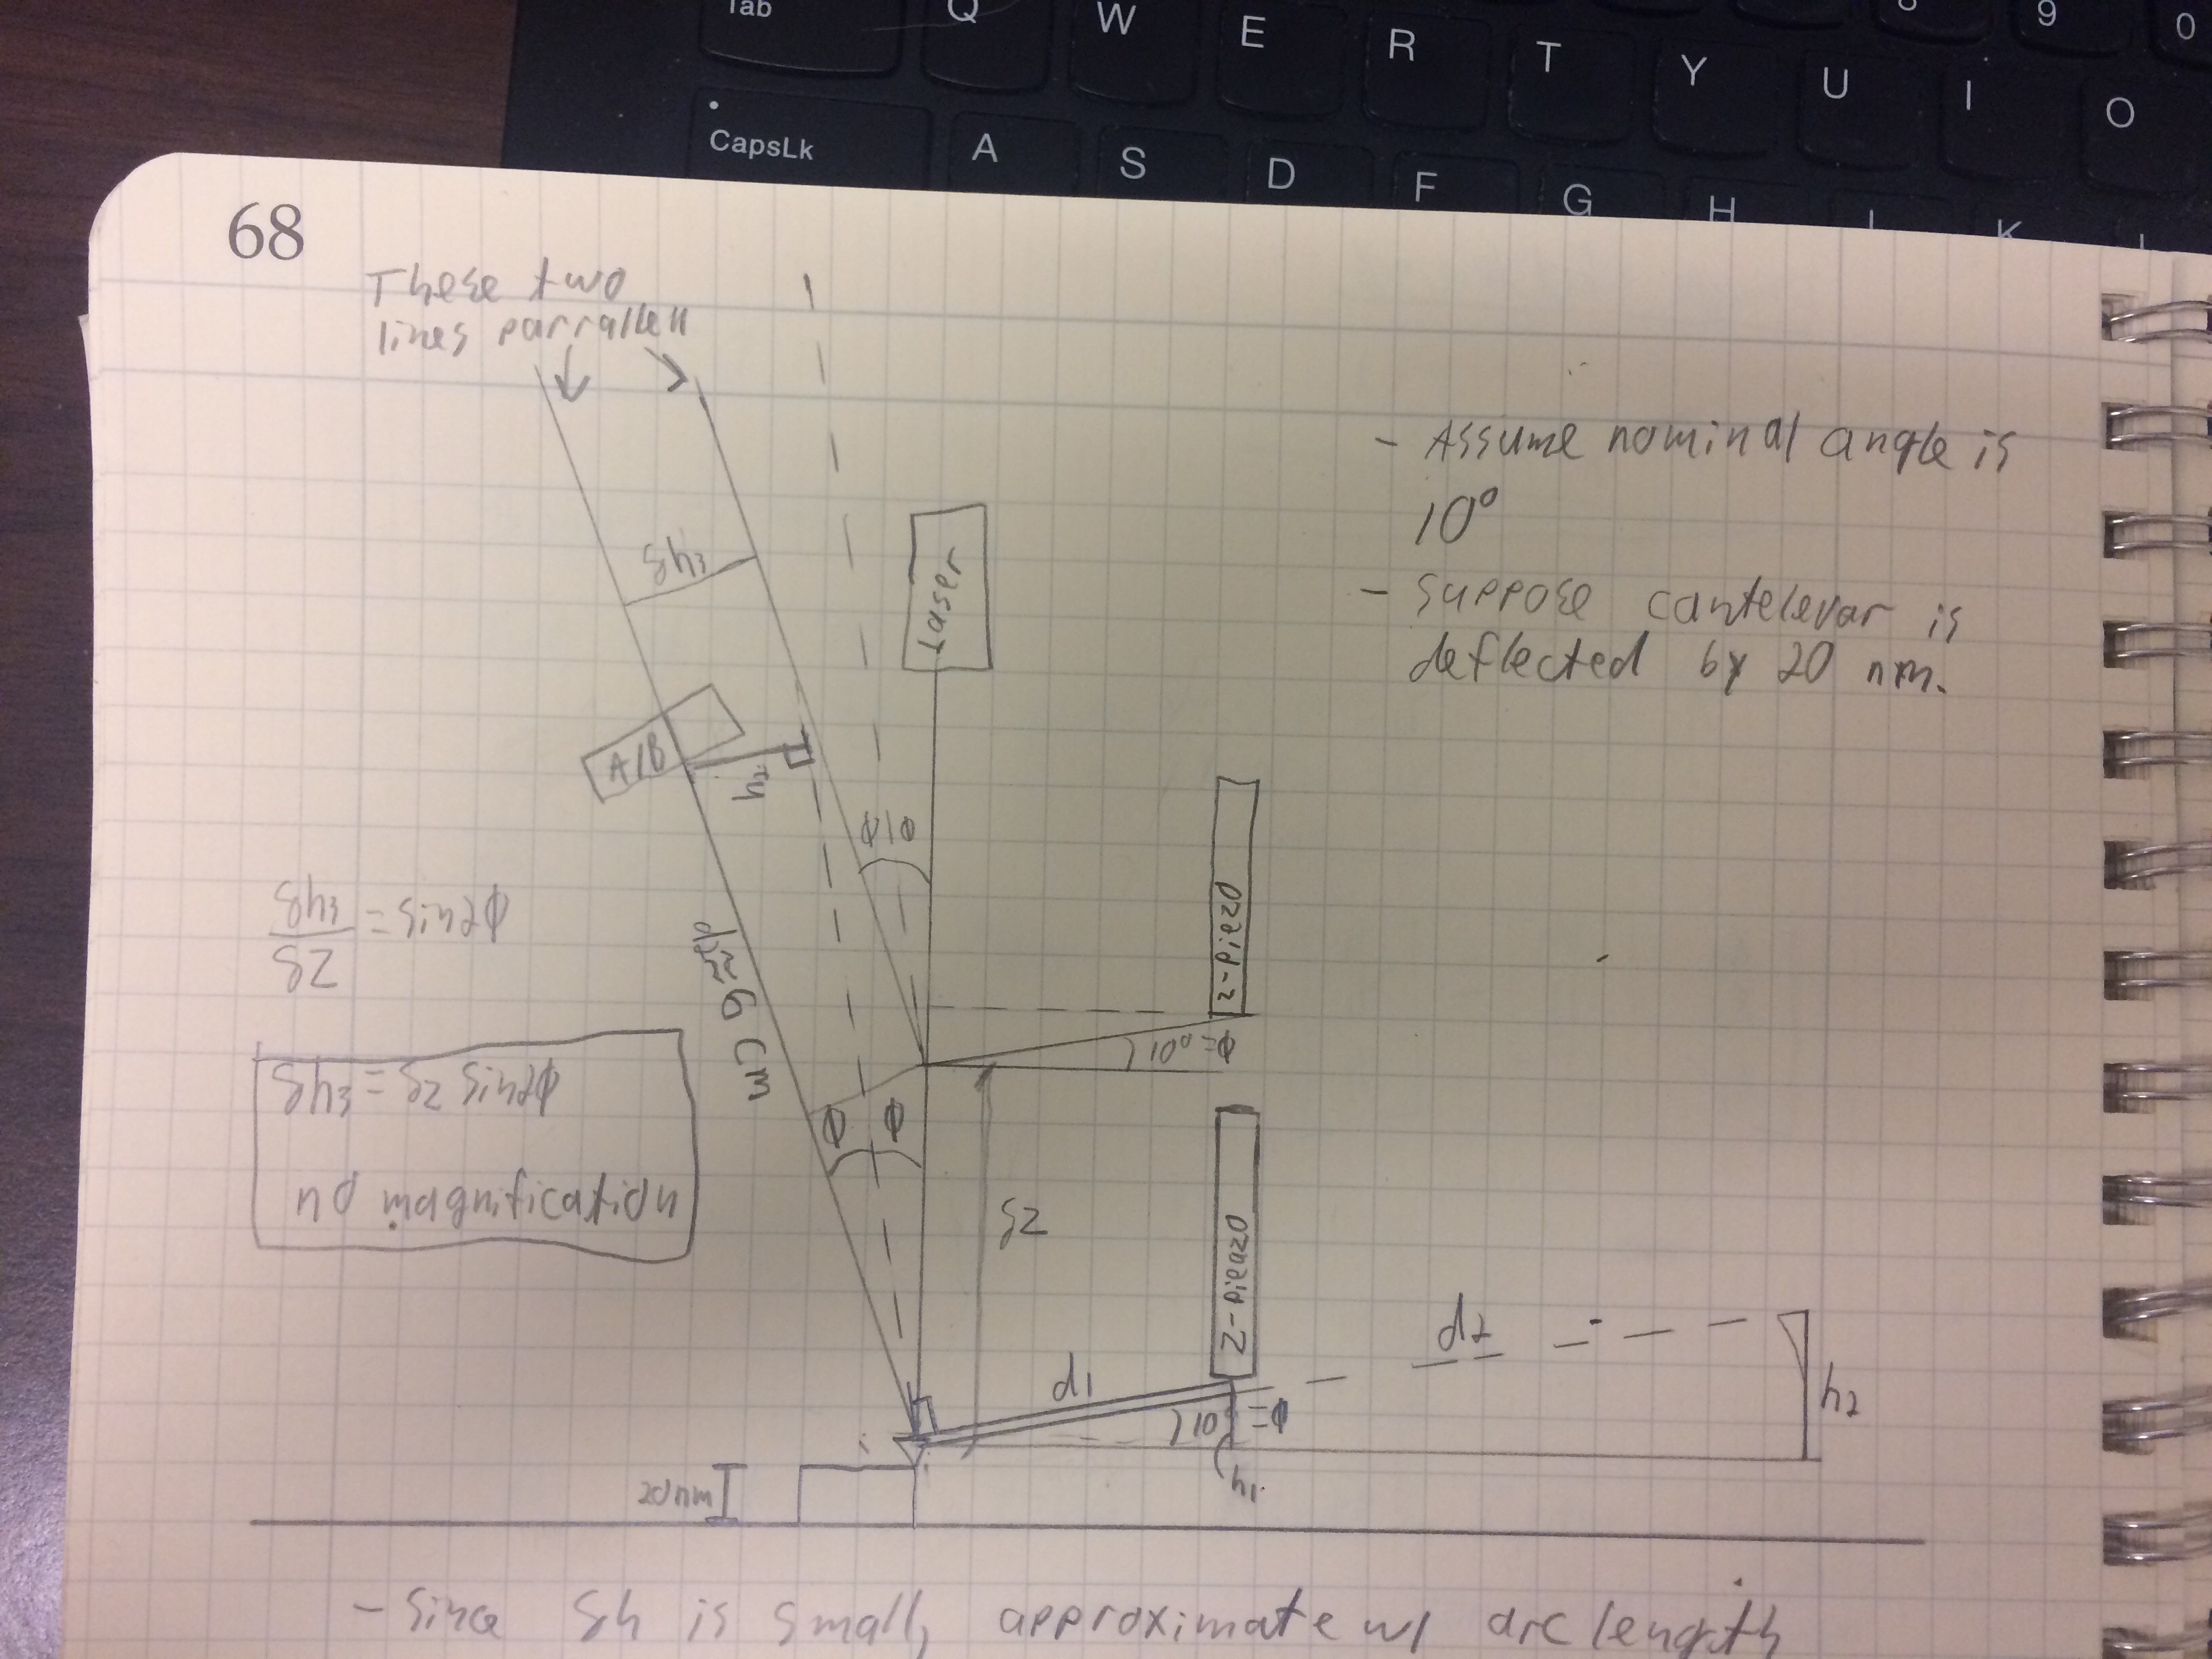 Tab
Q
W
E
R
T
Y
U
I
O
9
0
CapsLk
A
S
D
F
G
H
K
68
These two
lines parrallell
- Assume nominal angle is
10°
- suppose cantelevar is
deflected by 20 nm.
δh₃
Laser
A/B
h₂
Φ|Φ
z-Piezo
δh₃/δz = sin2Φ
6 cm
10° = Φ
δh₃ = δz sin2Φ
no magnification
Φ Φ
δz
Z-Pieazo
d₂
d₁
h₂
10 = Φ
h₁
20nm
- since δh is small, approximate w/ arc length